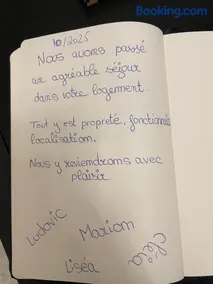 Booking.com
10/2025
Nous avons passé
un agréable séjour
dans votre logement.
Tout y est propreté, fonctionnal
localisation.
Nous y reviendrons avec
plaisir
Ludovic
Mariom
Liséa
Cléa